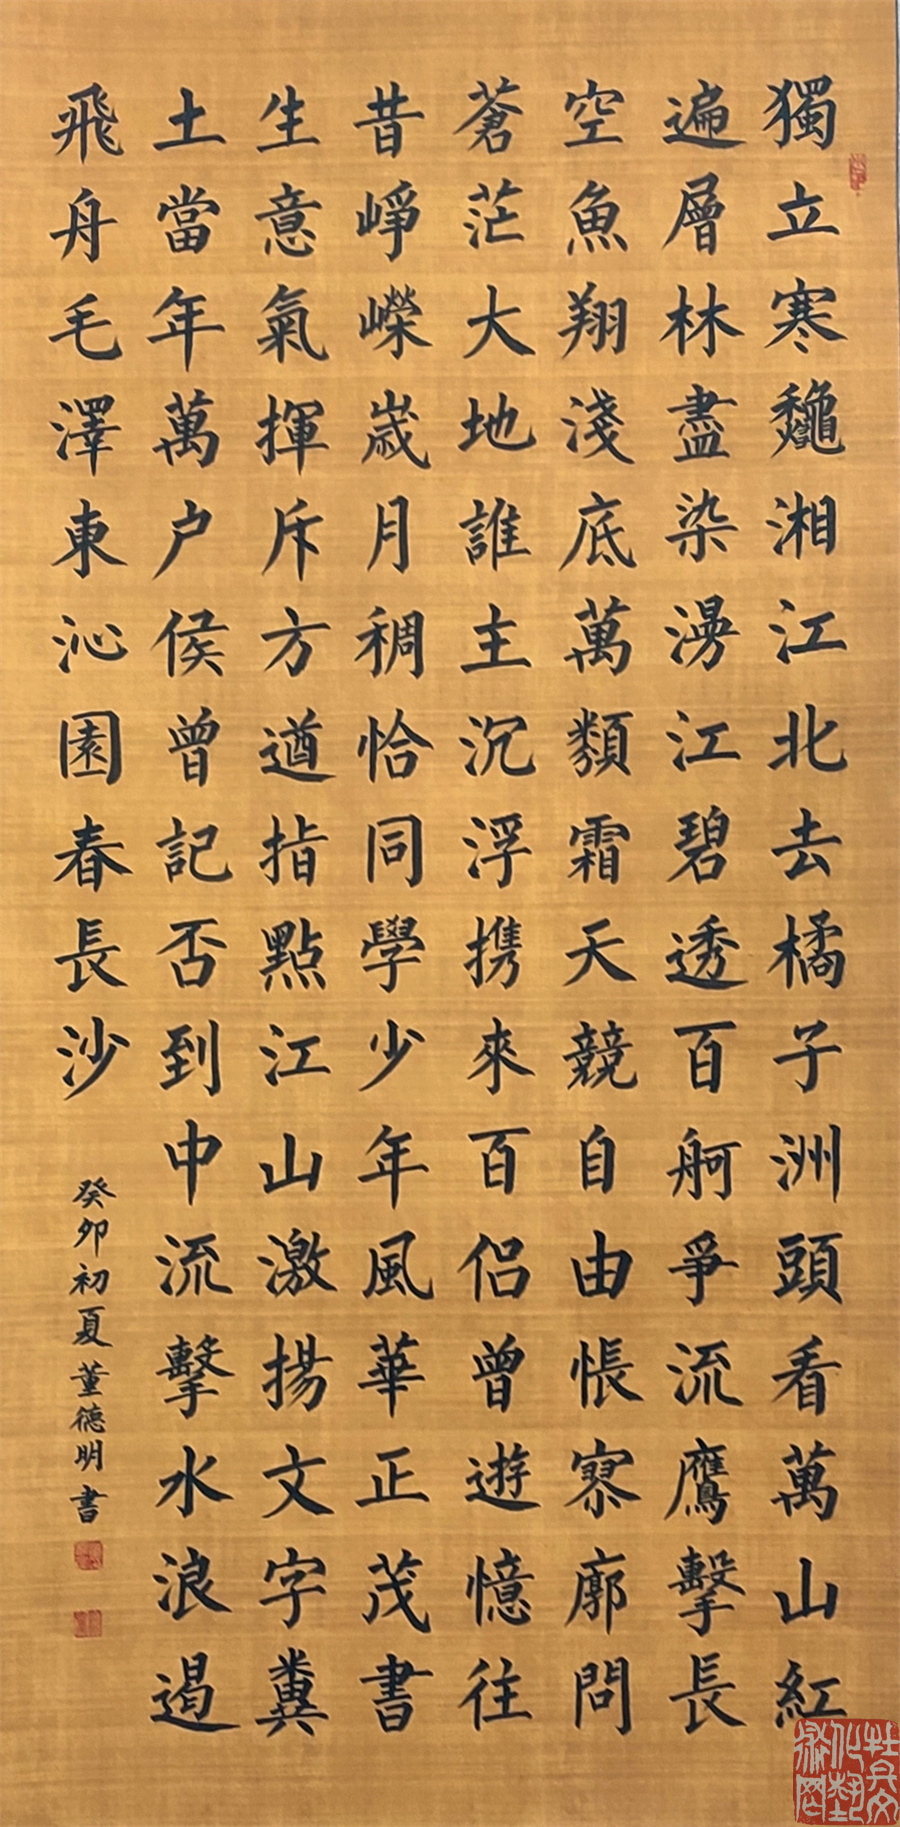 獨立寒龝湘江北去橘子洲頭看萬山紅
遍層林盡染漫江碧透百舸爭流鷹擊長
空魚翔淺底萬類霜天競自由悵寥廓問
蒼茫大地誰主沉浮携來百侶曾遊憶往
昔崢嶸崴月稠恰同學少年風華正茂書
生意氣揮斥方遒指點江山激揚文字糞
土當年萬户侯曾記否到中流擊水浪遏
飛舟毛澤東沁園春長沙
癸卯初夏董德明書